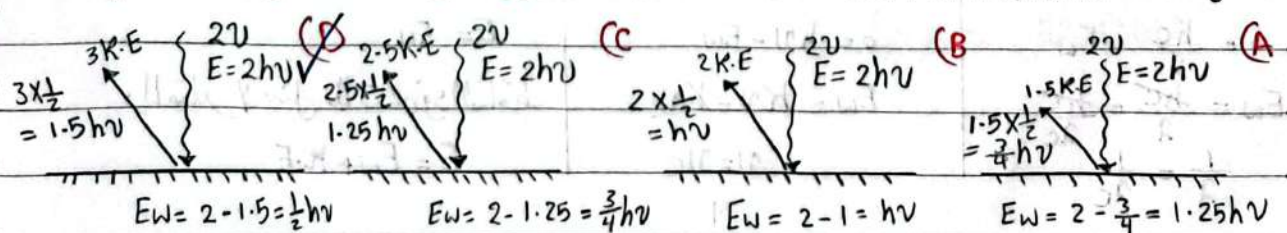 3K.E 2υ (D)✓
E=2hυ
3×1/2
= 1.5hυ
Ew= 2-1.5=1/2hυ
2.5K.E 2υ (C
E=2hυ
2.5×1/2
1.25hυ
Ew= 2-1.25=3/4hυ
2K.E 2υ (B
E=2hυ
2×1/2
=hυ
Ew= 2-1=hυ
1.5K.E 2υ (A
E=2hυ
1.5×1/2
=3/4hυ
Ew= 2-3/4=1.25hυ